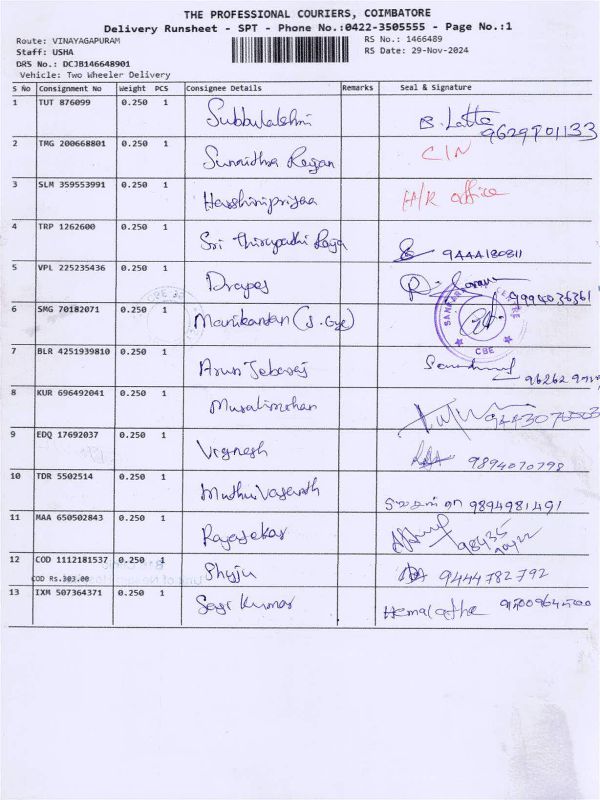 THE PROFESSIONAL COURIERS, COIMBATORE
Delivery Runsheet - SPT - Phone No.:0422-3505555 - Page No.:1
Route: VINAYAGAPURAM RS No.: 1466489
Staff: USHA RS Date: 29-Nov-2024
DRS No.: DCJB146648901
Vehicle: Two Wheeler Delivery
S No Consignment No Weight PCS Consignee Details Remarks Seal & Signature
1 TUT 876099 0.250 1 Subbulakshmi B. Latta 9629701133
2 TMG 200668801 0.250 1 Sunaithra Rajan CIN
3 SLM 359553991 0.250 1 Harshinipriyaa H/R office
4 TRP 1262600 0.250 1 Sri Thirupathi Raja 9444180811
5 VPL 225235436 0.250 1 Drapes 9994036361
6 SMG 70182071 0.250 1 Manikandan CBE
7 BLR 4251939810 0.250 1 Arun Jebaraj
8 KUR 696492041 0.250 1 Muralimohan
9 EDQ 17692037 0.250 1 Vignesh 9894070798
10 TDR 5502514 0.250 1 Muthu Vasanth 9894981491
11 MAA 650502843 0.250 1 Rajasekar 98435
12 COD 1112181537 0.250 1 Shyju 9444782792
COD Rs.303.00
13 IXM 507364371 0.250 1 Kumar Hemalatha